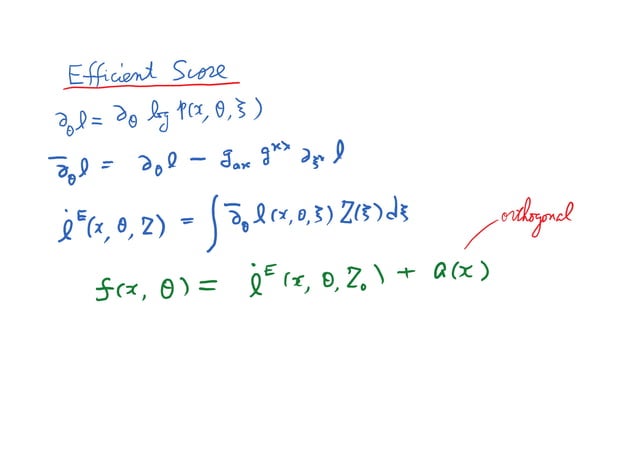 Efficient Score
∂_θ l = ∂_θ log p(x, θ, ξ)
∂̄_θ l = ∂_θ l − g_{ax} g^{xx} ∂_{ξ^x} l
l̇^E(x, θ, Z) = ∫ ∂̄_θ l(x, θ, ξ) Z(ξ) dξ
orthogonal
f(x, θ) = l̇^E(x, θ, Z_0) + a(x)